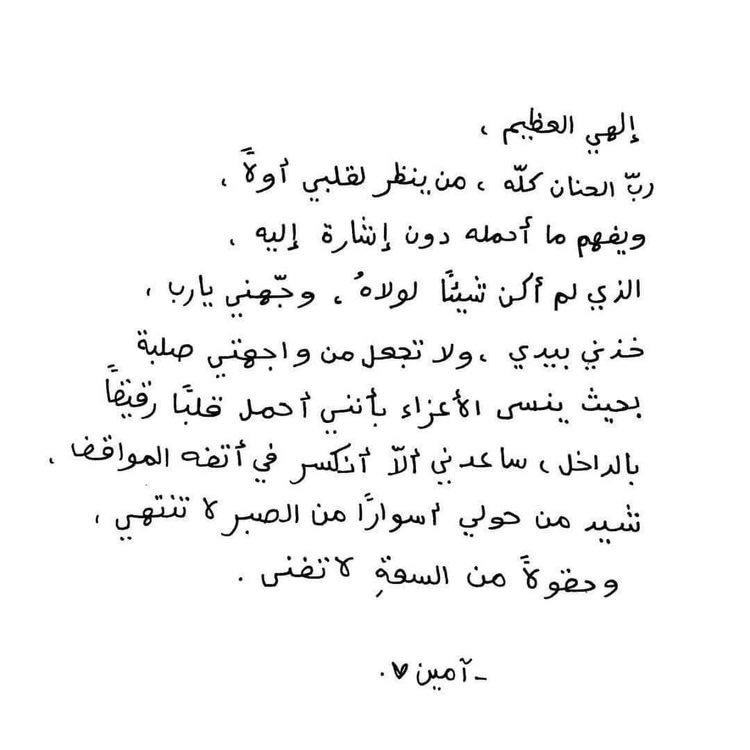 إلهي العظيم ،
ربّ الحنان كلّه ، من ينظر لقلبي أولاً ،
ويفهم ما أحمله دون إشارة إليه ،
الذي لم أكن شيئًا لولاهُ ، وجّهني يارب ،
خذني بيدي ، ولا تجعل من واجهتي صلبة
بحيث ينسى الأعزاء بأنني أحمل قلبًا رقيقاً
بالداخل ، ساعدني ألاّ أنكسر في أتفه المواقف ،
شيد من حولي أسوارًا من الصبر لا تنتهي ،
وحقولاً من السعةِ لا تفنى .
_ آمين ♥ .